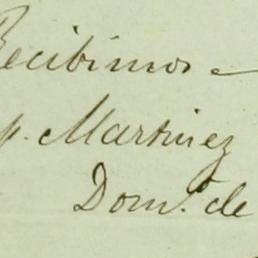 Recibimos
p. Martinez
Dom.º de